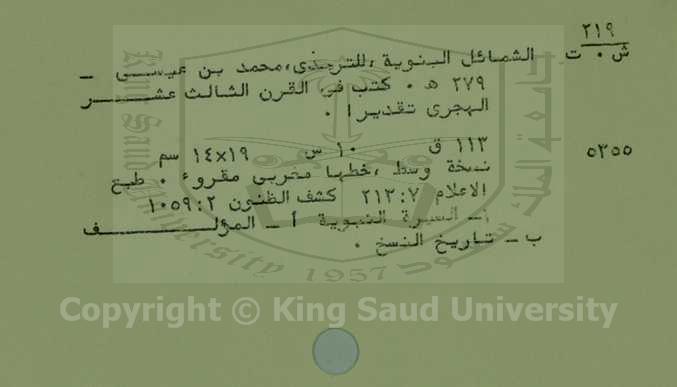 ٢١٩
ش ٠ ت الشمائل النبوية ،للترمذى،محمد بن عيسى ـ
٢٧٩ ه ٠ كتب فى القرن الثالث عشـــــر
الهجرى تقديرا ٠
١١٣ ق ١٠ س ١٩×١٤ سم
٥٢٥٥
نسخة وسط ،خطها مغربى مقروء ٠ طبع
الاعلام ٧:٢١٣ كشف الظنون ٢:١٠٥٩
أـ السيرة النبوية أ ـ المؤلــــــــف
ب ـ تاريخ النسخ ٠
King Saud University
1957
Copyright © King Saud University